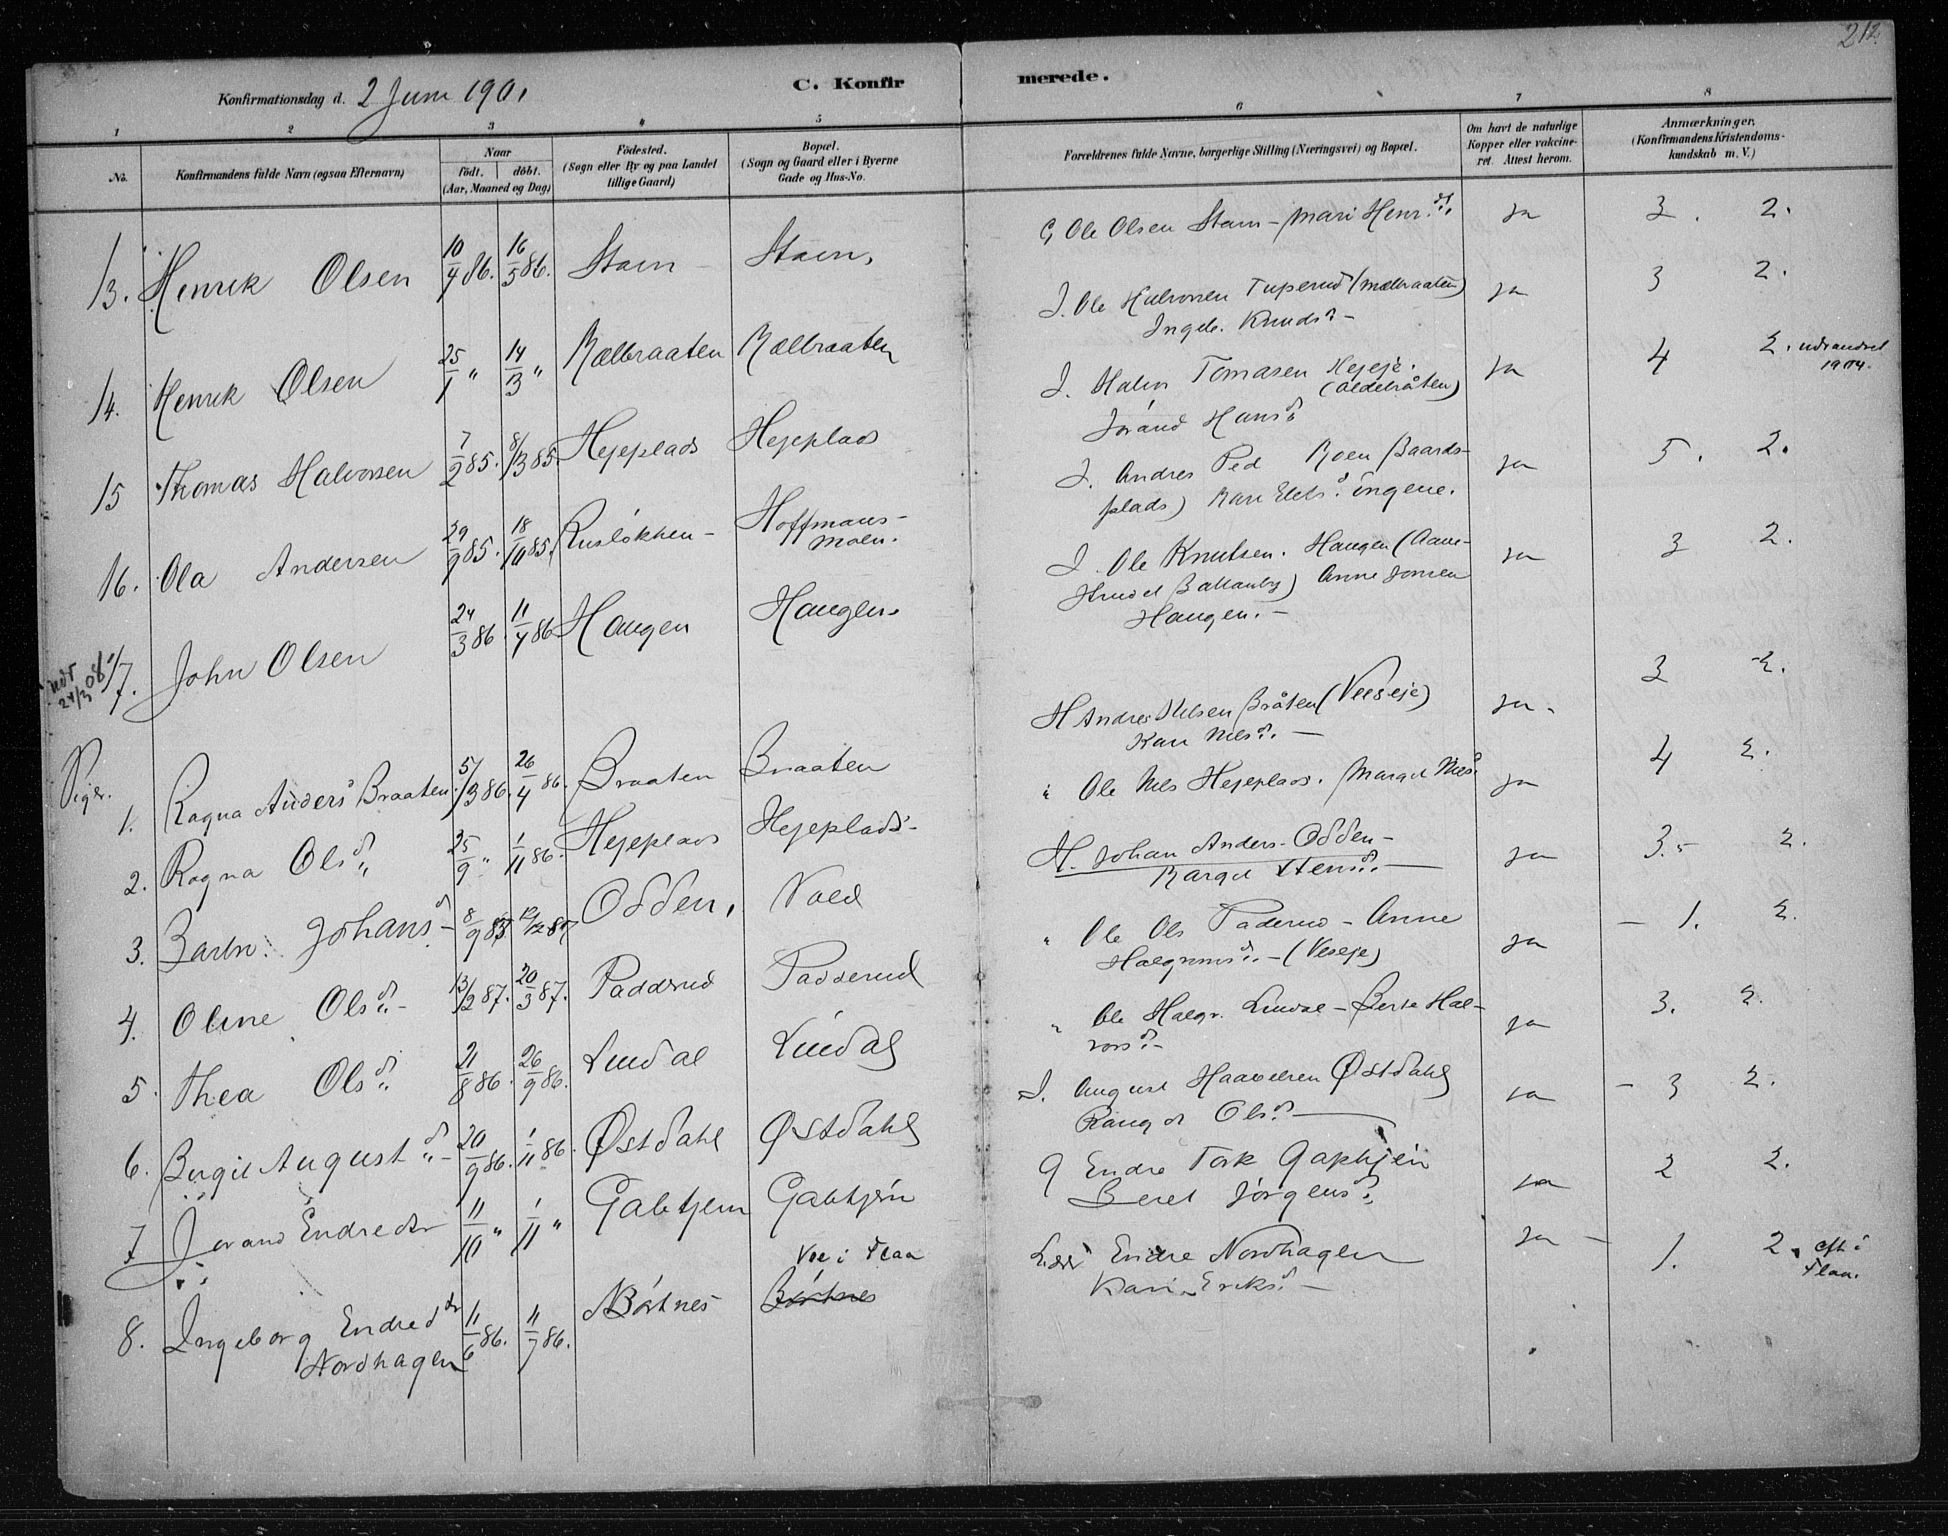 212.
Konfirmationsdag d. 2 Juni 1901
C. Konfirmerede.
1 2 3 4 5 6 7 8
No.
Konfirmandens fulde Navn (ogsaa Efternavn)
Naar
født. døbt.
(Aar, Maaned og Dag)
Fødested.
(Sogn eller By og paa Landet
tillige Gaard)
Bopæl.
(Sogn og Gaard eller i Byerne
Gade og Hus-No.
Forældrenes fulde Navne, borgerlige Stilling (Næringsvei) og Bopæl.
Om havt de naturlige
Kopper eller vakcine-
ret. Attest herom.
Anmærkninger,
(Konfirmandens Kristendoms-
kundskab m. V.)
13. Henrik Olsen 10/4 86. 16/5 86. Stavn Stavn. G Ole Olsen Stavn - Mari Henr.d. ja 3. 2.
14. Henrik Olsen 25/1 " 14/3 " Mælbraaten Mælbraaten J. Ole Halvorsen Tuperud (mælbraaten)
Ingeb. Knudsd. - ja 3 2.
15 Thomas Halvorsen 7/2 85. 8/3 85. Hejeplads Hejeplads J. Halvor Tomasen Hejeje.
Jøránd Hansd ja 4 2. udvandret
1904.
16. Ola Andersen 29/9 85. 18/10 85. Rusløkken - Hoffmans-
moen. J. Andres Ped Moen Baards-
plads) ja 5. 2.
udv
24/3 08 17. John Olsen 24/3 86. 11/4 86 Haugen Haugen. J. Ole Knutsen. Haugen
Anne Jonsen
Haugen. - ja 3 2.
Piger.
1. Ragna Anders Braaten 5/3 86. 26/4 86. Braaten Braaten H Andres Nelsen Bråten (Veeseje)
Kari Nilsd. - ja. 3 2.
2. Ragna Olsd. 25/9 " 1/11 86. Hejeplads Hejeplads - " Ole Nils Hejeplads. Margit Nils. ja 4 2.
3. Barbr. Johansd - Odden, Vold H. Johan Anders. Odden -
Margit Stensd. ja 3. - 2.
4. Oline Olsd. - 13/2 87. 20/3 87. Padderud Padderud " Ole Ols Paderud - Anne
Halgrimsd. - (Veseje) ja - 1. 2.
5. Thea Olsd. 21/8 86. 26/9 86. Lindal Lindal " Ole Halgr. Lindal - Berte Hal-
vorsd. - ja 3. 2.
6. Birgit Augustd. - 20/9 86. 1/11 86. Østdahl Østdahl J. August Haavelsen Østdahl
Olsd. ja - 3 2.
7 Jorand Endredtr 11/10 " 1/11 " Gabtjern Gabtjérn G Endre Tork Gaptjérn
Beret Jørgensd. ja 2 2.
8. Ingeborg Endredtr
Nordhagen 11/6 86. 11/7 86. Børtnes Vee i Flaa
Børtnes Endre Nordhagen
Kari Eriksd. - ja - 1. 2. cft i
Flaa.